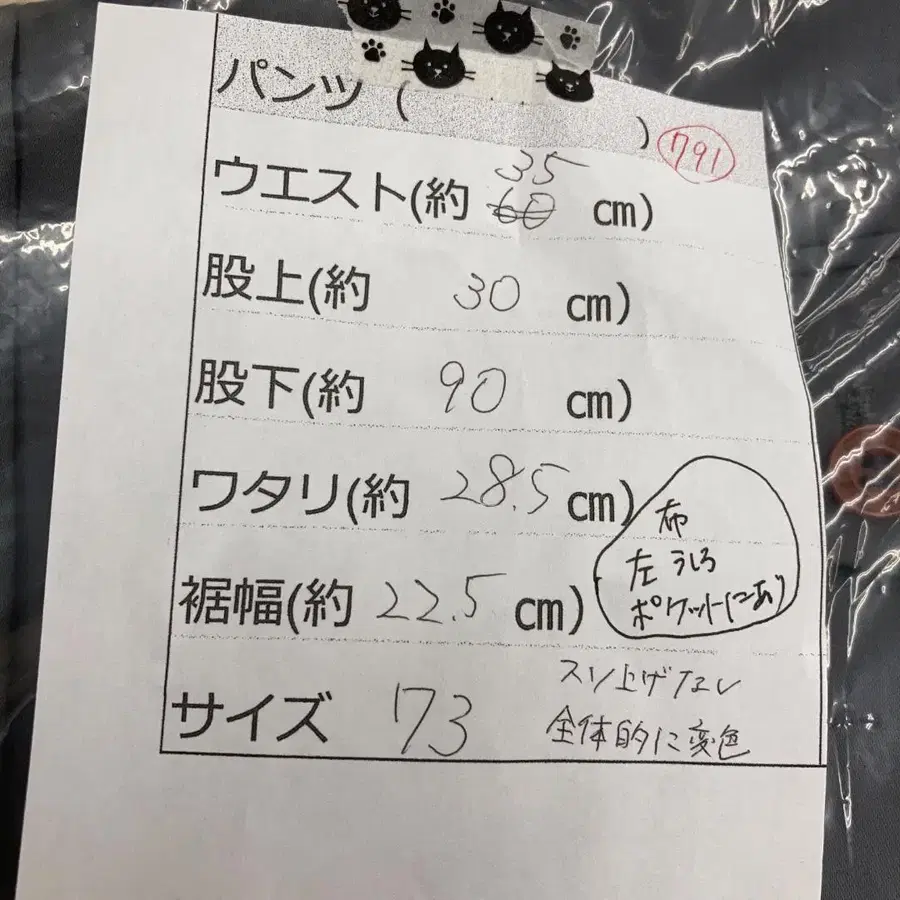 パンツ( ) 791
ウエスト(約 35 cm)
股上(約 30 cm)
股下(約 90 cm)
ワタリ(約 28.5 cm)
布
左 うしろ
ポケットにあり
裾幅(約 22.5 cm)
サイズ 73
スソ上げなし
全体的に変色